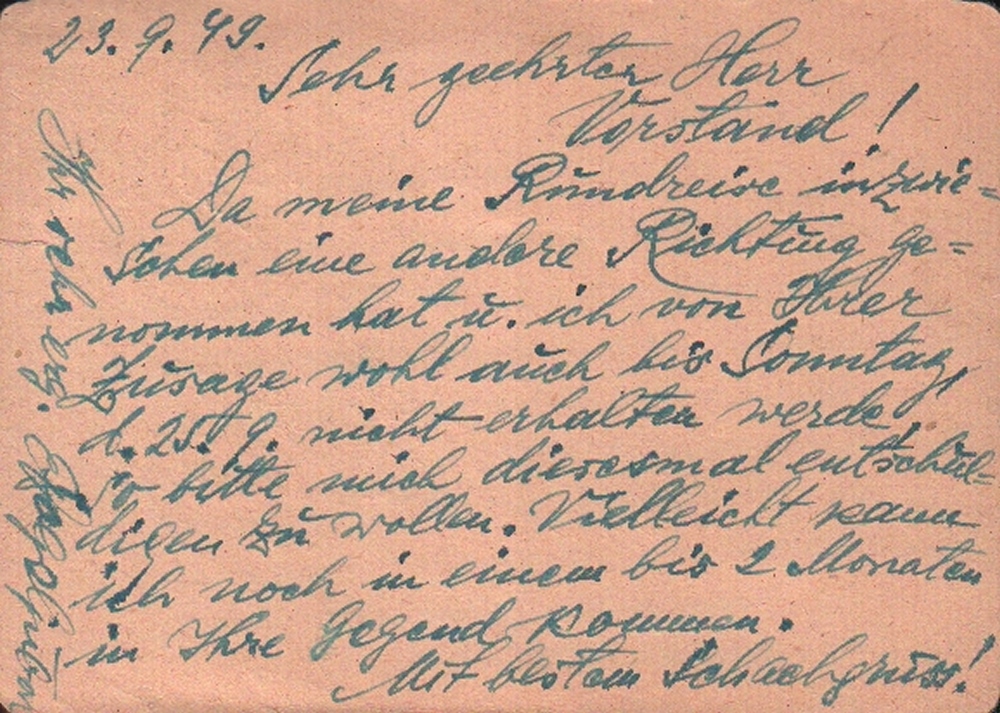 23. 9. 49.
Sehr geehrter Herr
Vorstand!
Da meine Rundreise inzwie=
schen eine andere Richtung ge=
nommen hat u. ich von Ihrer
Zusage wohl auch bis Sonntag,
d. 25. 9. nicht erhalten werde,
so bitte mich diesesmal entschul=
digen zu wollen. Vielleicht kann
ich noch in einem bis 2 Monaten
in Ihre Gegend kommen.
Mit bestem Schachgruss!
Ihr sehr erg.